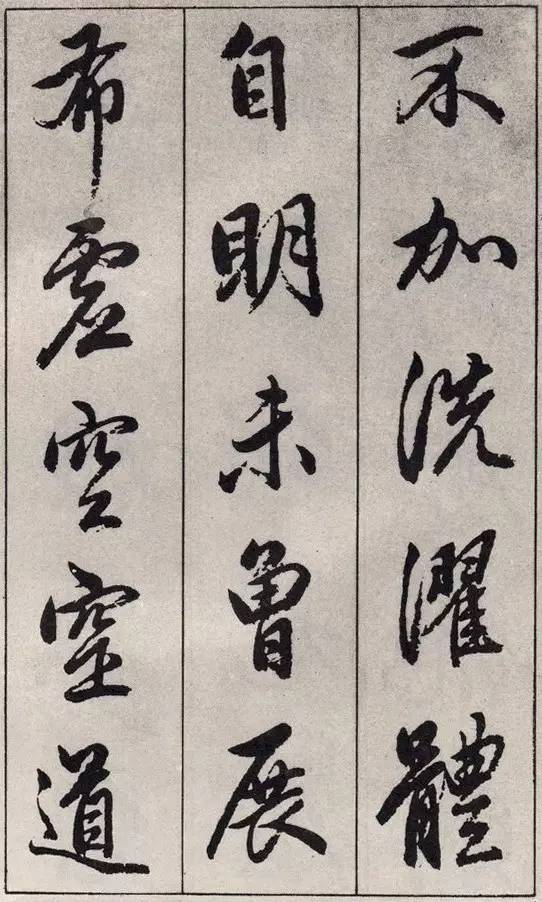 不加洗濯體
自明未曾展
希虛空空道